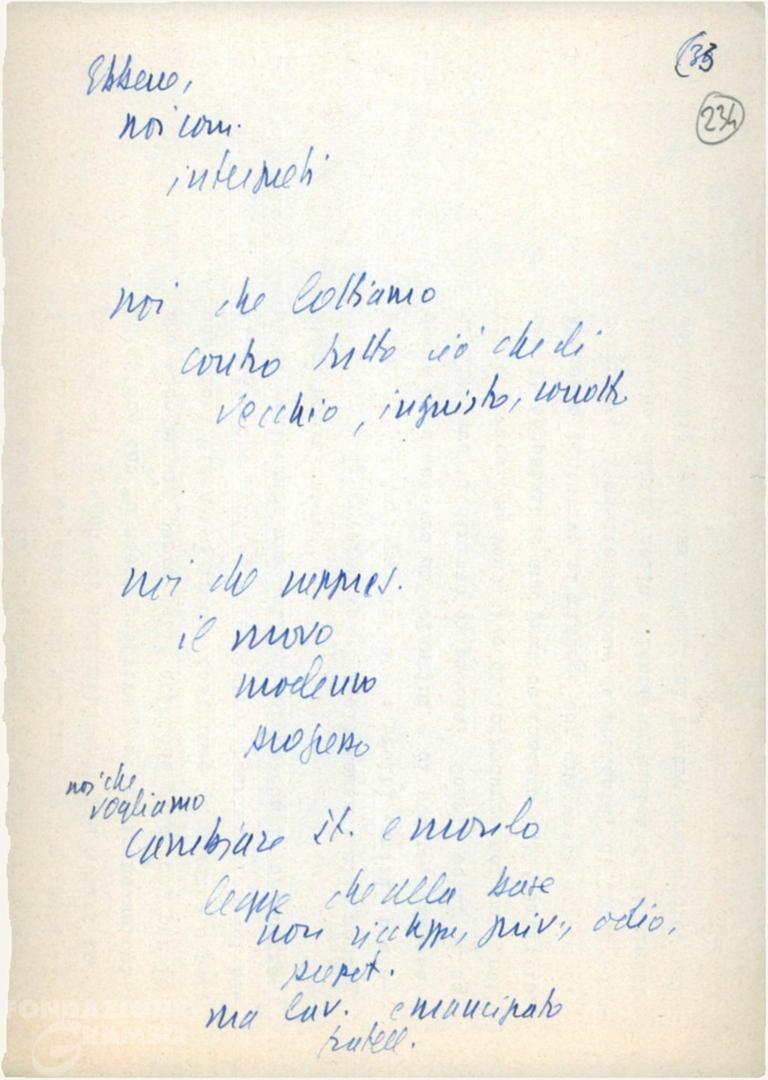 (33
234
Ebbene,
noi com.
interpreti
noi che lottiamo
contro tutto ciò che di
vecchio, ingiusto, corrotto
noi che rappres.
il nuovo
moderno
progresso
noi che
vogliamo
cambiare it. e mondo
legge che alla base
non ricchezze, priv., odio,
ma lav. emancipato
fratell.
FONDAZIONE
GRAMSCI